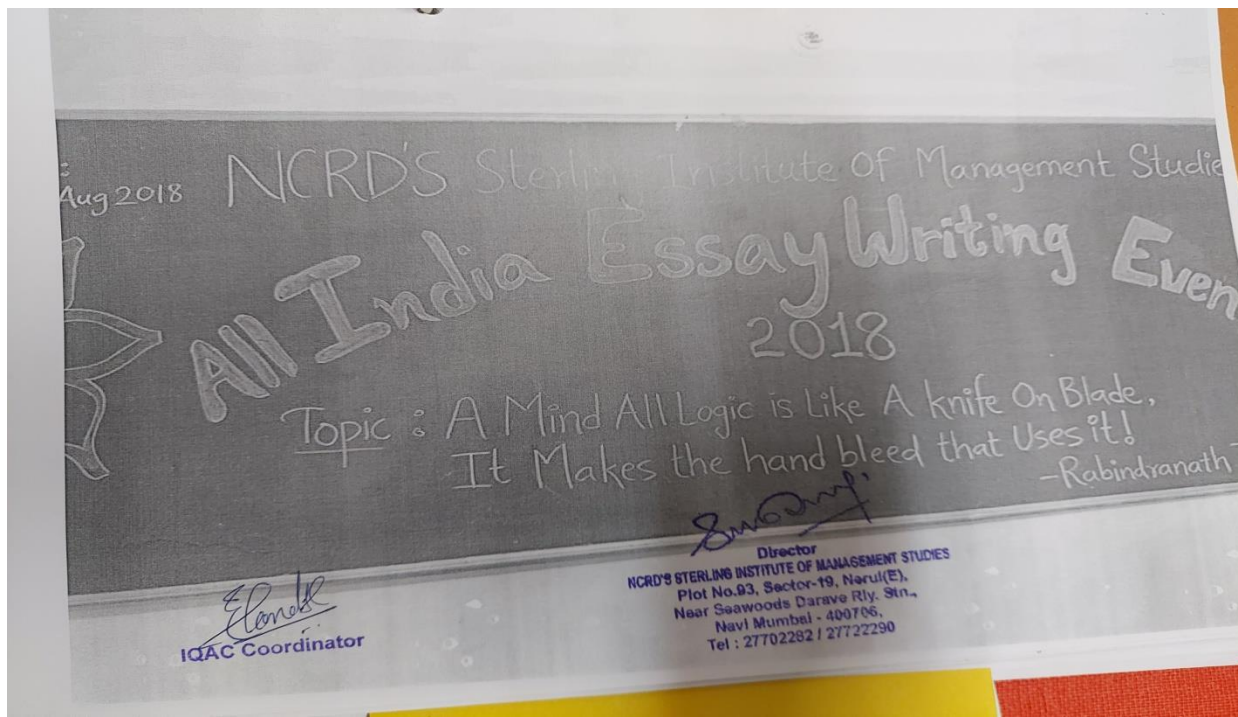 Aug 2018
NCRD'S Sterling Institute Of Management Studie
All India Essay Writing Even
2018
Topic : A Mind All Logic is Like A knife On Blade,
It Makes the hand bleed that Uses it!
-Rabindranath
Director
NCRD'S STERLING INSTITUTE OF MANAGEMENT STUDIES
Plot No.93, Sector-19, Nerul(E),
Near Seawoods Darave Rly. Stn.,
Navi Mumbai - 400706.
Tel : 27702282 / 27722290
IQAC Coordinator